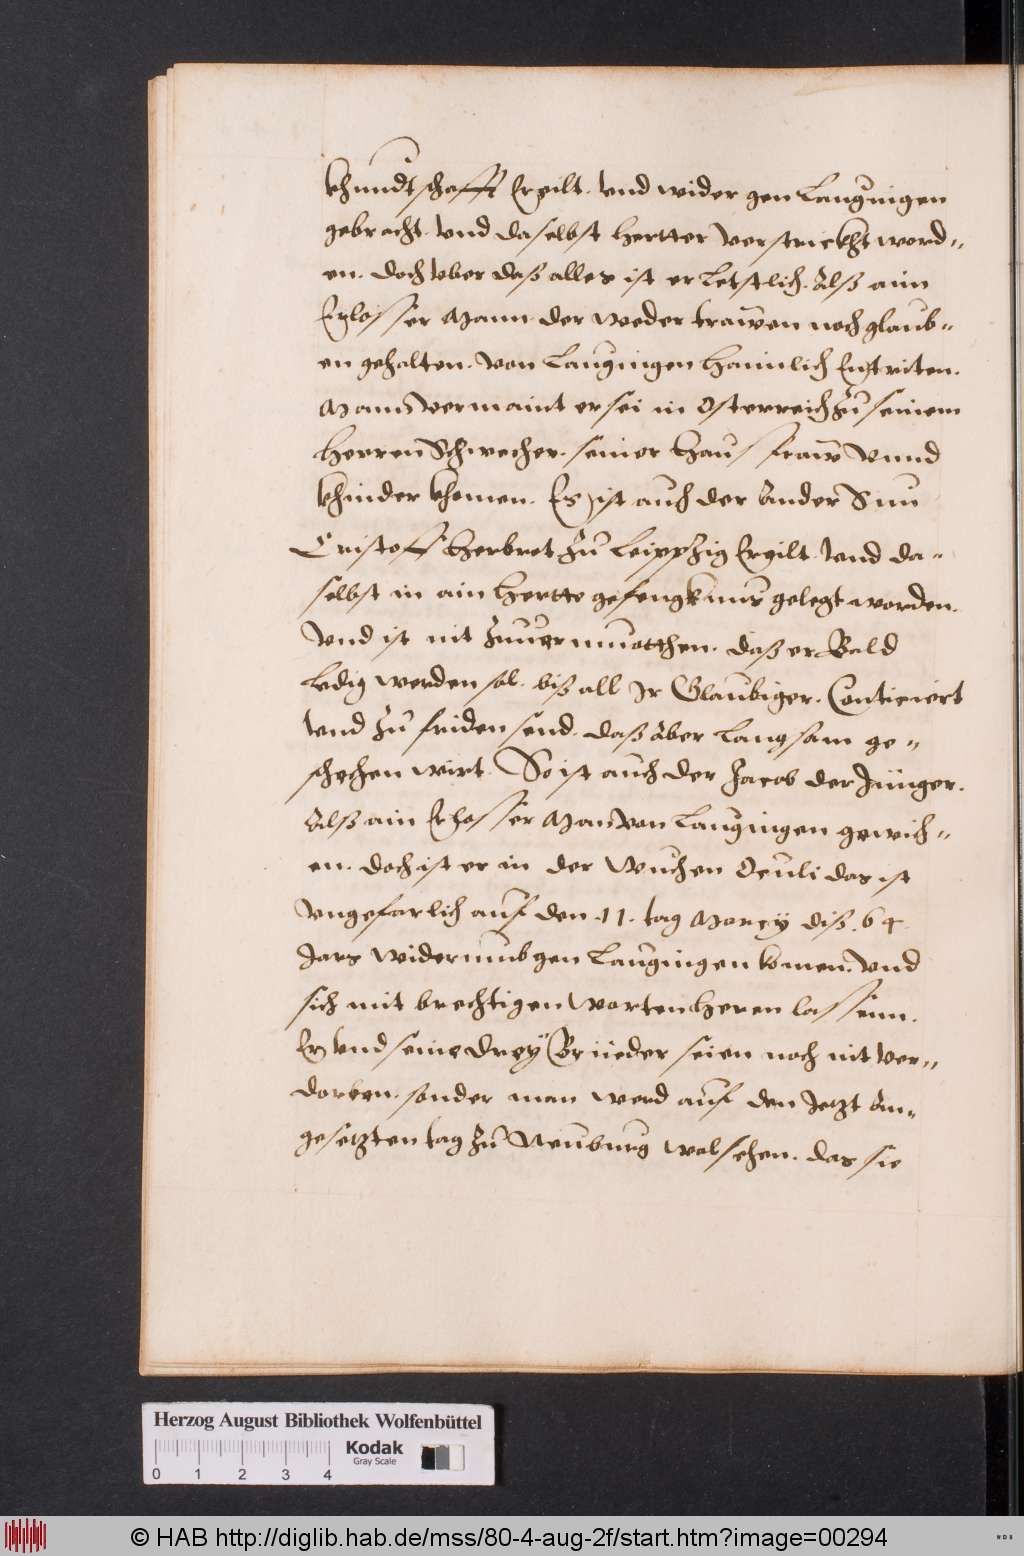 khundtschafft Ereilt. Vnd wider gen Laugingen
gebracht. Vnd daselbst hertter verstrickht word=
en. Doch vber daß alles ist er letstlich. Alß ain
Erlosser Mann der weder trawen noch glaub=
en gehalten. Von Laugingen haimlich Entriten.
Mann vermaint er sei in Osterreich zu seinem
herren Schwecher. seiner hausfraw vnnd
khinder khomen. Es ist auch der Ander Sun
Cristoff Herbrot zu Leipzig Ereilt. Vnd da=
selbst in ain hertte gefengkhnus gelegt worden.
Vnd ist nit zuuermuotten. daß er Bald
ledig werden sol. biß all Ir Glaubiger. Contiert
vnd zu friden send. daß aber langsam ge=
schechen wirt. So ist auch der Jacob der Jünger.
Alß ain Erlosser Man von Laugingen gewich=
en. doch ist er in der Wuchen Oculi das ist
Vngefarlich auf den .11. tag Marcy diß .64.
Jars widerumb gen Laugingen komen. Vnd
sich mit brechtigen worten heren lassenn.
Er vnd seine drey Brüeder seien noch nit ver=
dorben. sonder man werd auf den Jetzt An=
gesetzten tag zu Neuburg wol sehen. das sie
Herzog August Bibliothek Wolfenbüttel
Kodak
Gray Scale
0 1 2 3 4
© HAB http://diglib.hab.de/mss/80-4-aug-2f/start.htm?image=00294